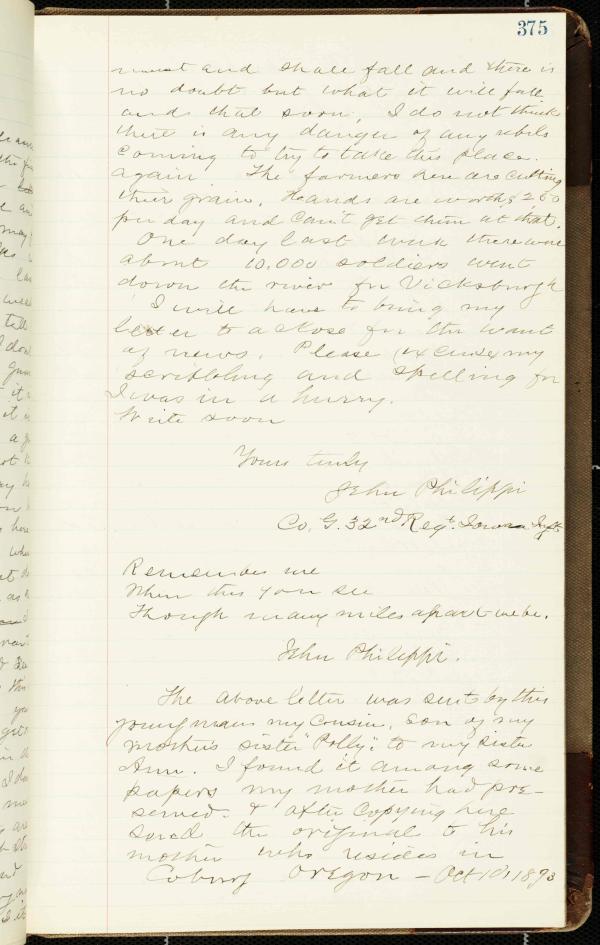 375
must and shall fall and there is
no doubt but what it will fall
and that soon. I do not think
there is any danger of any rebels
coming to try to take this place.
again The farmers here are cutting
their grain, hands are worth $2.50
per day and can't get them at that.
One day last week there were
about 10,000 soldiers went
down the river for Vicksburgh
I will have to bring my
letter to a close for the want
of news. Please (excuse) my
scribbling and spelling for
I was in a hurry.
Write soon
Yours truly
John Philippi
Co. G. 32nd Regt. Iowa Inft
Remember me
When this you see
Though many miles apart we be.
John Philippi.
The above letter was sent by this
young man my cousin, son of my
mother's sister "Polly", to my sister
Ann. I found it among some
papers my mother had pre-
served. & after copying here
send the original to his
mother who resides in
Coburg Oregon - Oct 10, 1893